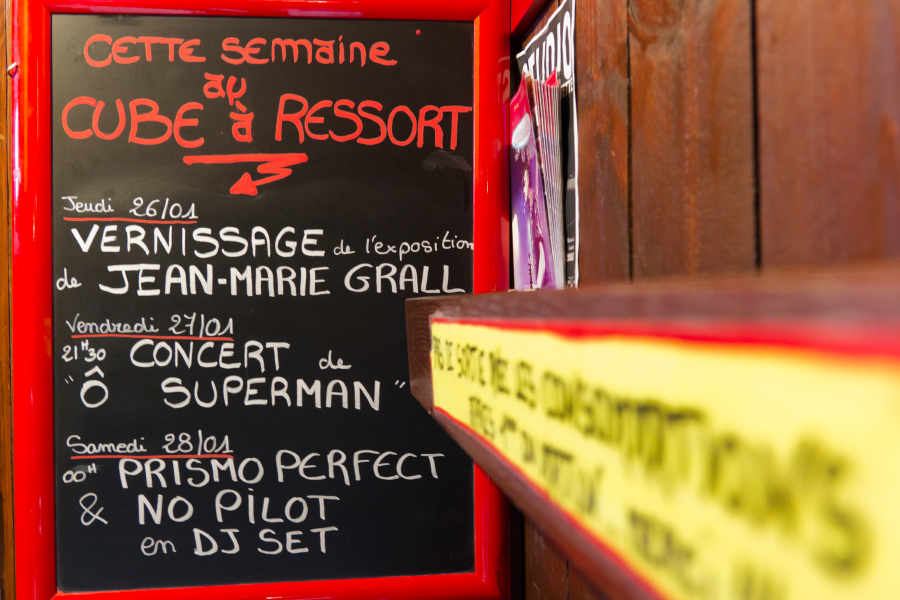 Cette semaine
au
CUBE à RESSORT
Jeudi 26/01
VERNISSAGE de l'exposition
de JEAN-MARIE GRALL
Vendredi 27/01
21H30 CONCERT de
"Ô SUPERMAN"
Samedi 28/01
00H PRISMO PERFECT
& NO PILOT
en DJ SET
STUDIO
CONSOMMATIONS